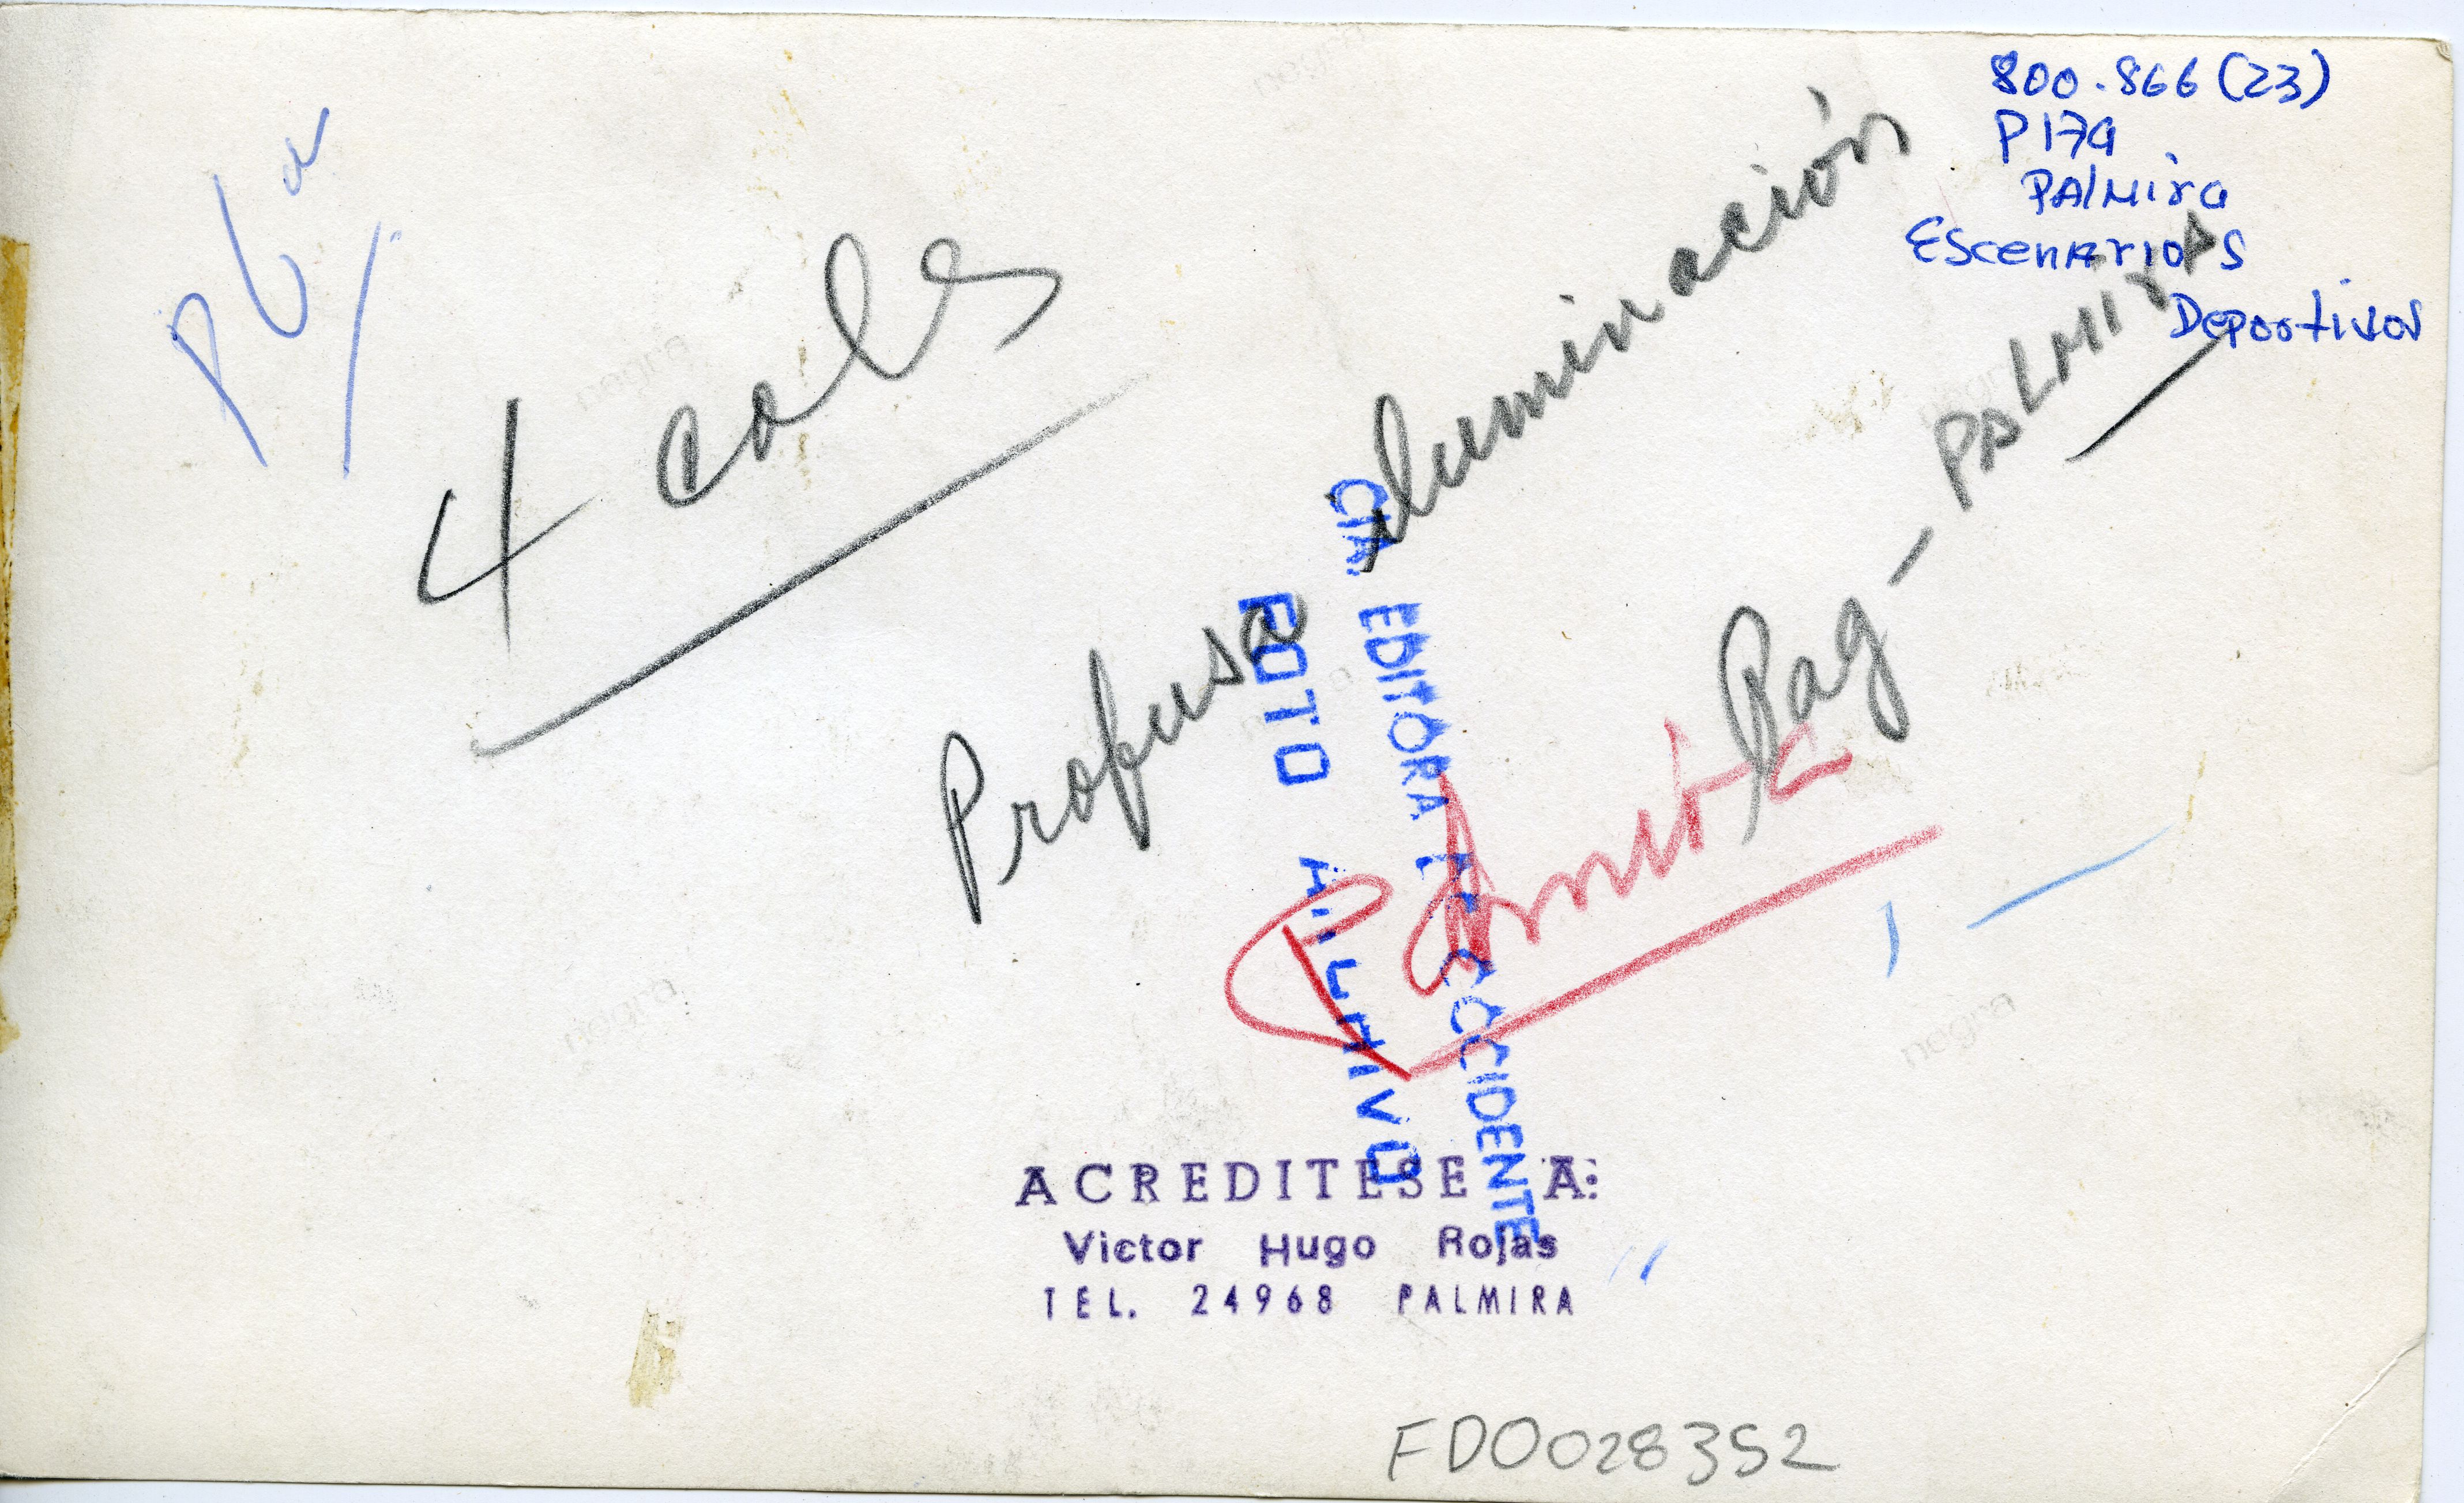 800.866 (23)
P179
PAlMira
EscenArios
Deportivos
4 cols
Profusa iluminación
Pag - PALMIRA
CIA. EDITORA DE OCCIDENTE
FOTO ARCHIVO
ACREDITESE A:
Victor Hugo Rojas
TEL. 24968 PALMIRA
FD0028352